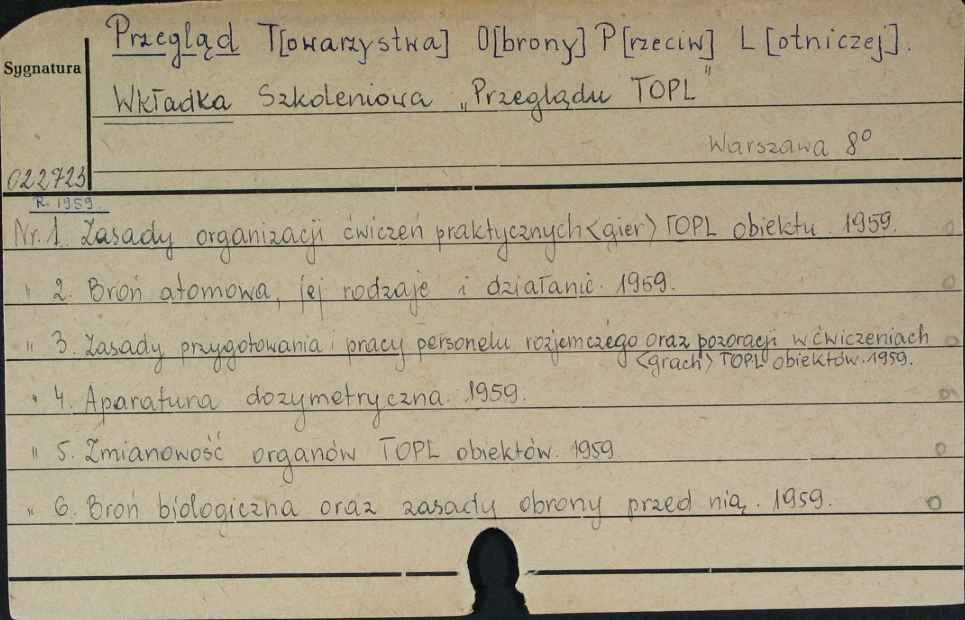 Przegląd T[owarzystwa] O[brony] P[rzeciw] L[otniczej].
Sygnatura
Wkładka Szkoleniowa „Przeglądu TOPL"
Warszawa 8°
022723
R. 1959.
Nr. 1. Zasady organizacji ćwiczeń praktycznych <gier> TOPL obiektu. 1959.
" 2. Broń atomowa, jej rodzaje i działanie. 1959.
" 3. Zasady przygotowania i pracy personelu rozjemczego oraz pozoracji w ćwiczeniach
<grach> TOPL obiektów. 1959.
" 4. Aparatura dozymetryczna. 1959.
" 5. Zmianowość organów TOPL obiektów. 1959.
" 6. Broń biologiczna oraz zasady obrony przed nią. 1959.